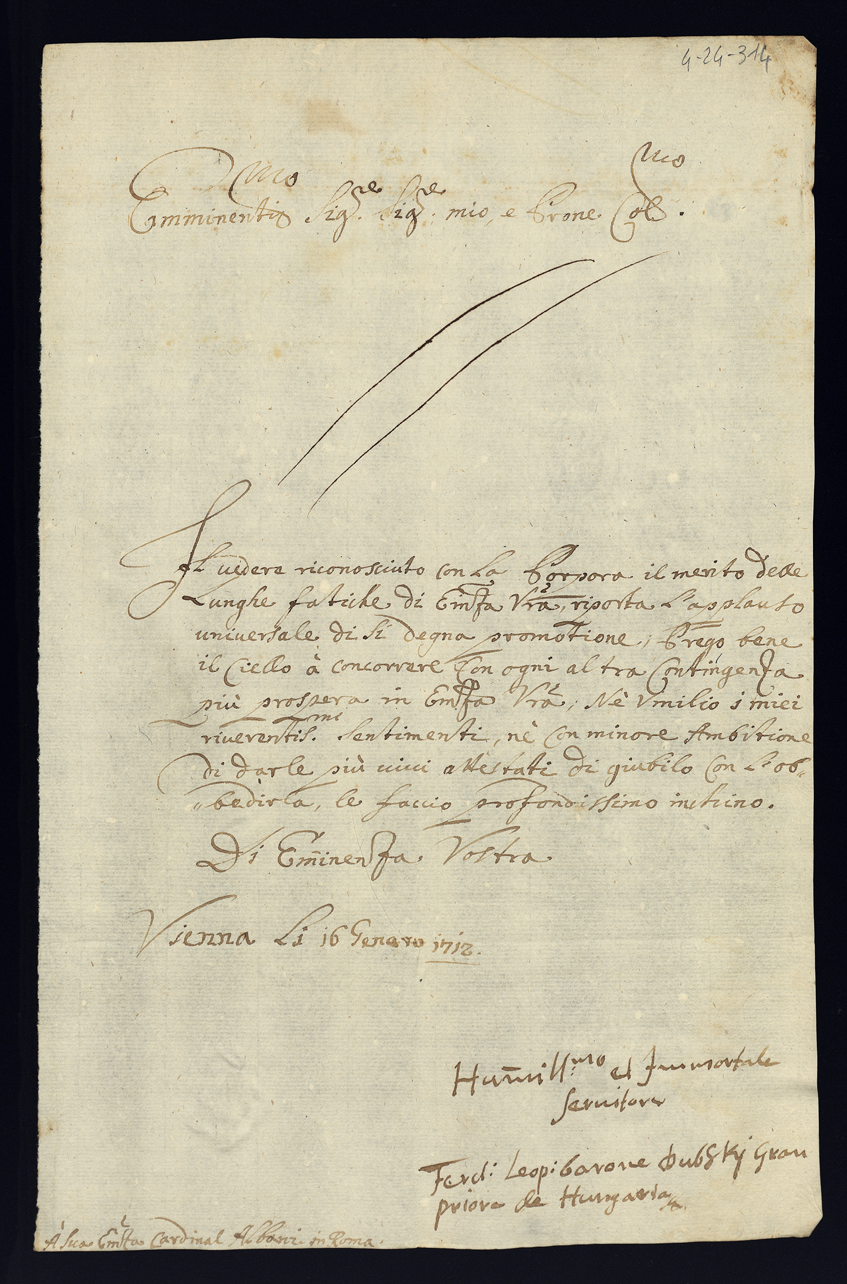 4-24-314
Emminentis^mo Sig^re Sig^re mio, e Prone Col^mo.
Il vedere riconosciuto con La Porpora il merito delle
Lunghe fatiche di Em̃za Vrã, riporta L'applauso
universale di si degna promotione; Prego bene
il Ciello à concorrere con ogni altra Contingenza
più prospera in Em̃za Vrã; Nè Vmilio i miei
riverentis.^mi Sentimenti, nè con minore Ambitione
di darle più vivi attestati di giubilo con L'ob-
bedirla, le faccio profondissimo inchino.
Di Em̃inenza Vostra
Vienna Li 16 Genaro 1712.
Hum̃ill^mo et Immortale
servitore
Ferd: Leop: barone Dubskÿ Gran
priore de Hungaria
A Sua Em̃za Cardinal Albani in Roma.